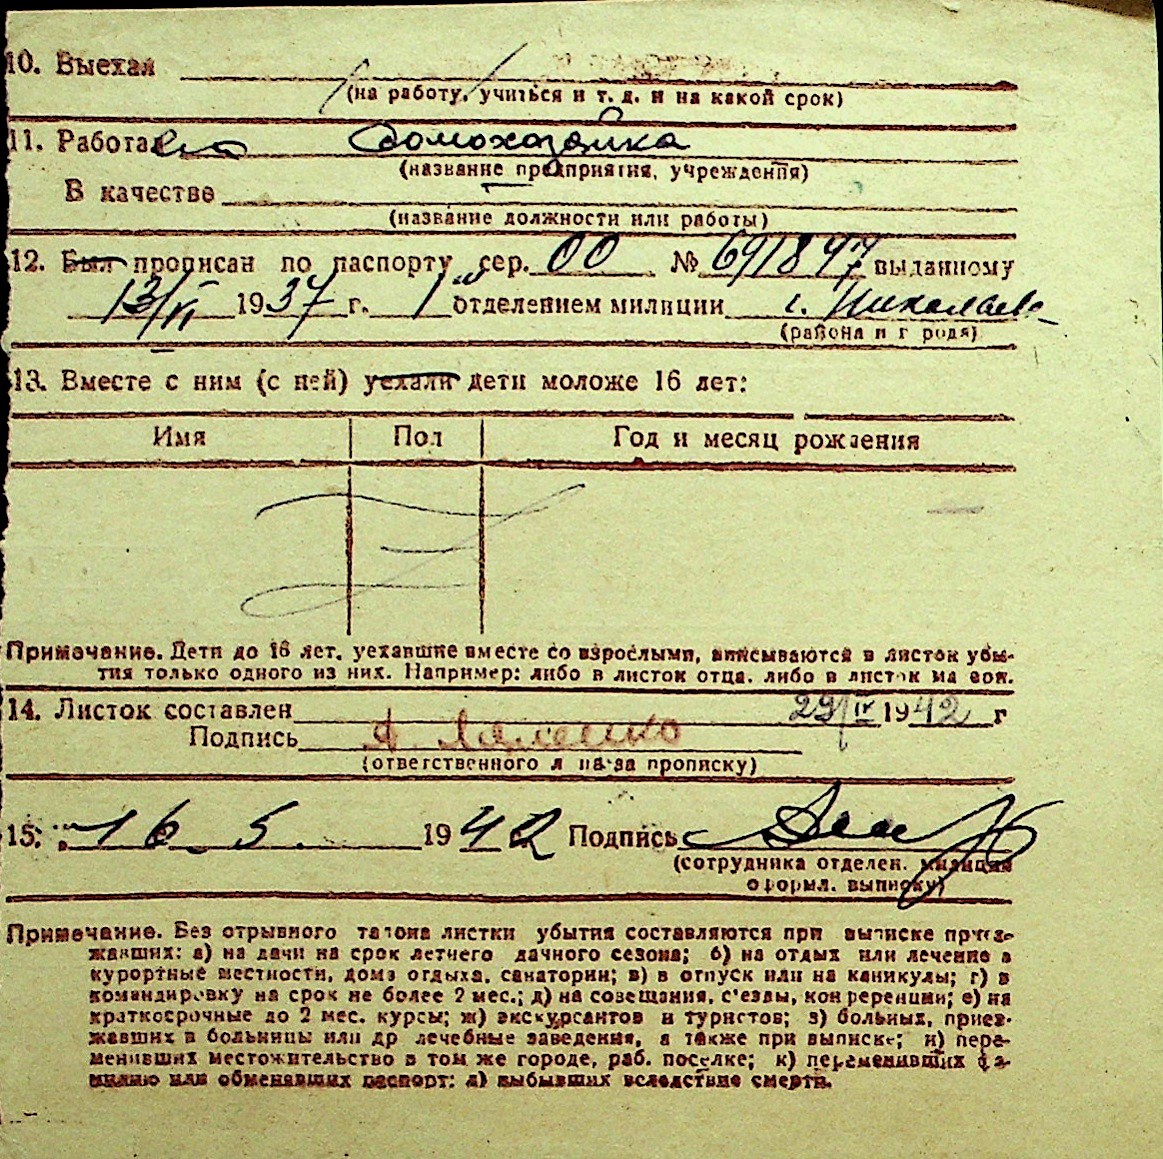 10. Выехал
(на работу, учиться и т. д. и на какой срок)
11. Работает домохозяйка
(название предприятия, учреждения)
В качестве
(название должности или работы)
12. Был прописан по паспорту сер. 00 № 691847 выданному
13/II 1937 г. 1 отделением милиции г. Николаева
(района и города)
13. Вместе с ним (с ней) уехали дети моложе 16 лет:
Имя Пол Год и месяц рождения
Примечание. Дети до 16 лет, уехавшие вместе со взрослыми, вписываются в листок убы-
тия только одного из них. Например: либо в листок отца, либо в листок матери.
14. Листок составлен 29/IV 1942 г
Подпись
(ответственного лица за прописку)
15. 16. 5. 1942 Подпись
(сотрудника отделен. милиции
оформл. выписку)
Примечание. Без отрывного талона листки убытия составляются при выписке приез-
жавших: а) на дачи на срок летнего дачного сезона; б) на отдых или лечение в
курортные местности, дома отдыха, санатории; в) в отпуск или на каникулы; г) в
командировку на срок не более 2 мес.; д) на совещания, с'езды, конференции; е) на
краткосрочные до 2 мес. курсы; ж) экскурсантов и туристов; з) больных, приез-
жавших в больницы или др лечебные заведения, а также при выписке; и) пере-
менивших местожительство в том же городе, раб. поселке; к) переменивших фа-
милию или обменявших паспорт; л) выбывших вследствие смерти.